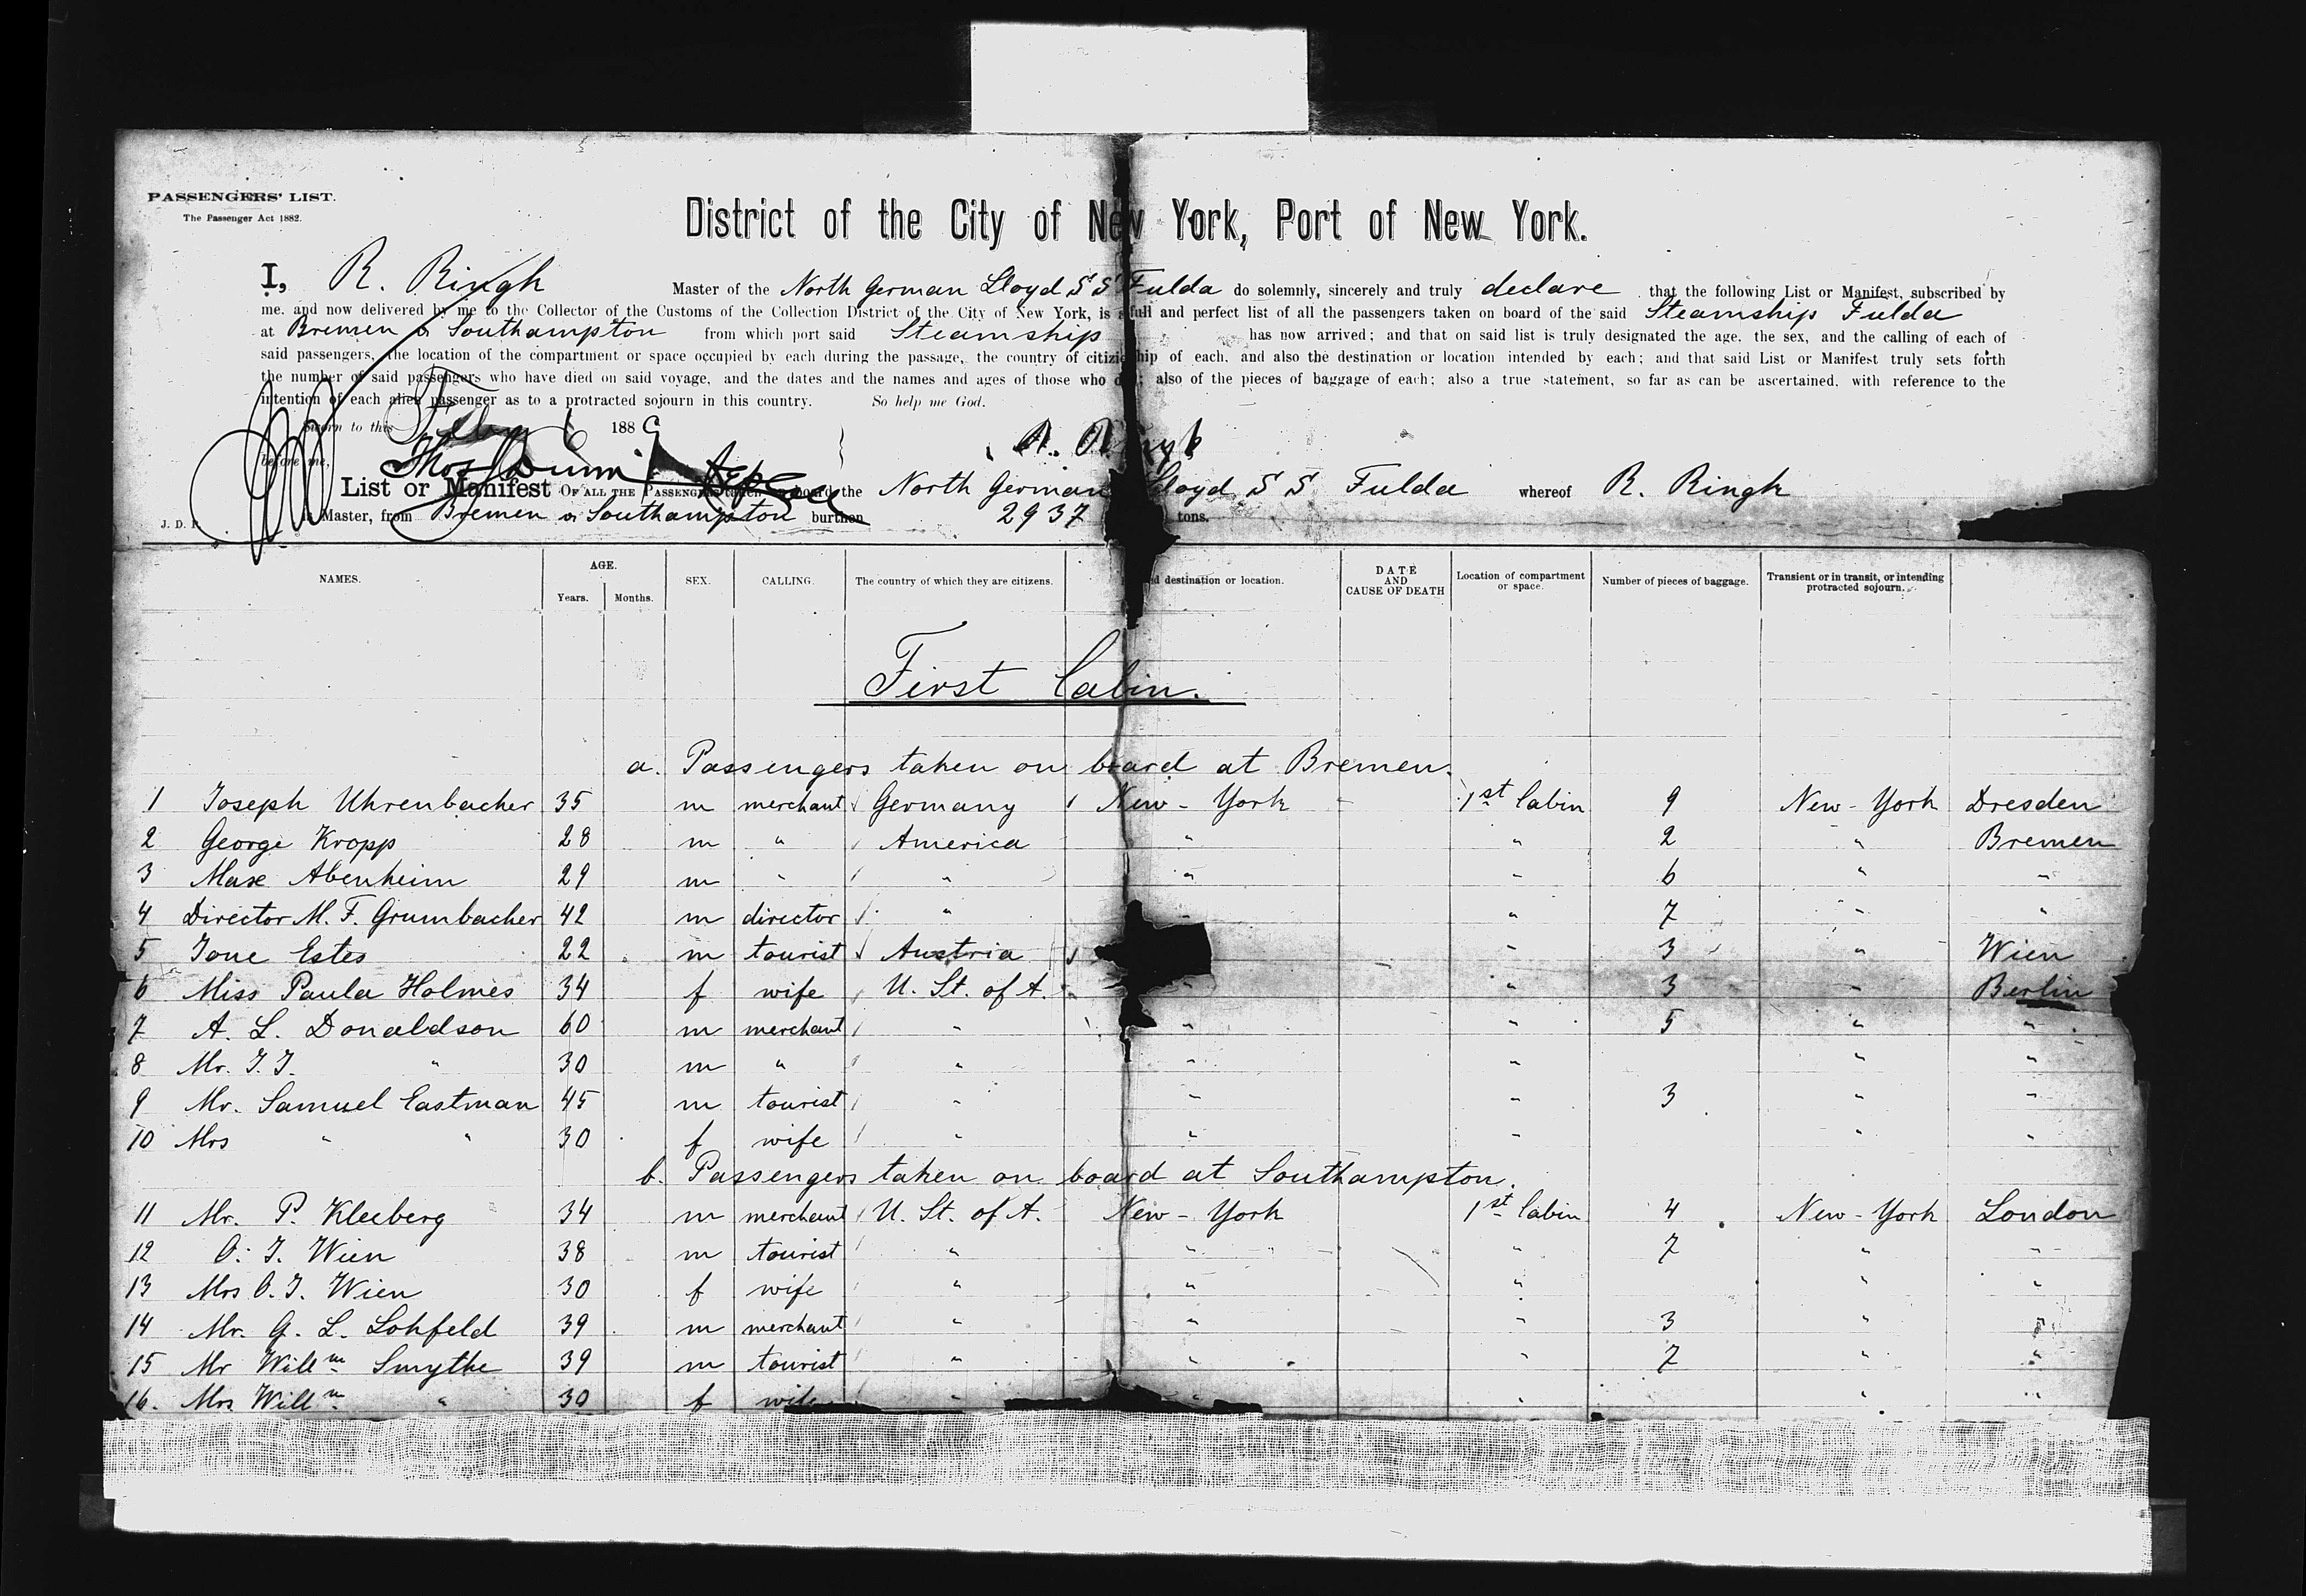 PASSENGERS' LIST.
The Passenger Act 1882.
District of the City of New York, Port of New York.
I, R. Ringk Master of the North German Lloyd S S Fulda do solemnly, sincerely and truly declare that the following List or Manifest, subscribed by
me, and now delivered by me to the Collector of the Customs of the Collection District of the City of New York, is a full and perfect list of all the passengers taken on board of the said Steamship Fulda
at Bremen & Southampton from which port said Steamship has now arrived; and that on said list is truly designated the age, the sex, and the calling of each of
said passengers, the location of the compartment or space occupied by each during the passage, the country of citizenship of each, and also the destination or location intended by each; and that said List or Manifest truly sets forth
the number of said passengers who have died on said voyage, and the dates and the names and ages of those who died; also of the pieces of baggage of each; also a true statement, so far as can be ascertained, with reference to the
intention of each alien passenger as to a protracted sojourn in this country. So help me God.
Sworn to this 6 1889
R. Ringk
before me, Thos Dunn
List or Manifest OF ALL THE PASSENGERS taken on board the North German Lloyd S S Fulda whereof R. Ringk
is Master, from Bremen & Southampton burthen 2937 tons.
NAMES. AGE. Years. Months. SEX. CALLING. The country of which they are citizens. destination or location. DATE AND CAUSE OF DEATH Location of compartment or space. Number of pieces of baggage. Transient or in transit, or intending protracted sojourn.
First Cabin.
a. Passengers taken on board at Bremen.
1 Joseph Uhrenbacher 35 m merchant Germany New-York 1st Cabin 9 New-York Dresden
2 George Kropp 28 m " America " " 2 " Bremen
3 Max Abenheim 29 m " " " " 6 " "
4 Director M. F. Grumbacher 42 m director " " " 7 " "
5 Estes 22 m tourist Austria " 3 " Wien
6 Miss Paula Holmes 34 f wife U. St. of A. " " 3 " Berlin
7 A. L. Donaldson 60 m merchant " " " 5 " "
8 Mr. J. J. " 30 m " " " " " "
9 Mr. Samuel Eastman 45 m tourist " " " 3 " "
10 Mrs " " 30 f wife " " " " "
b. Passengers taken on board at Southampton.
11 Mr. P. Kleeberg 34 m merchant U. St. of A. New-York 1st Cabin 4 New-York London
12 O. J. Wien 38 m tourist " " " 7 " "
13 Mrs O. J. Wien 30 f wife " " " " "
14 Mr. G. L. Lohfeld 39 m merchant " " " 3 " "
15 Mr Willm Smythe 39 m tourist " " " 7 " "
16. Mrs Willm " 30 f wife " " " " "